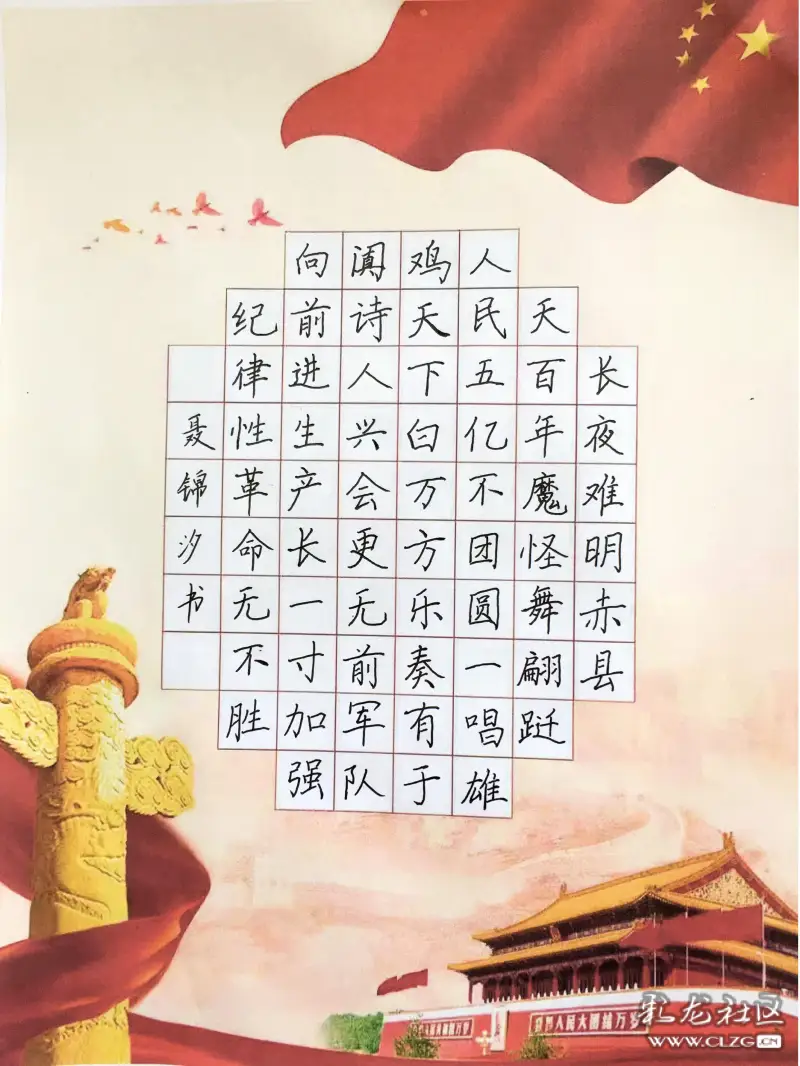 长夜难明赤县
天百年魔怪舞翩跹
人民五亿不团圆一唱雄
鸡天下白万方乐奏有于
阗诗人兴会更无前军队
向前进生产长一寸加强
纪律性革命无不胜
聂锦汐书
世界人民大团结万岁
彩龙社区
www.CLZG.CN